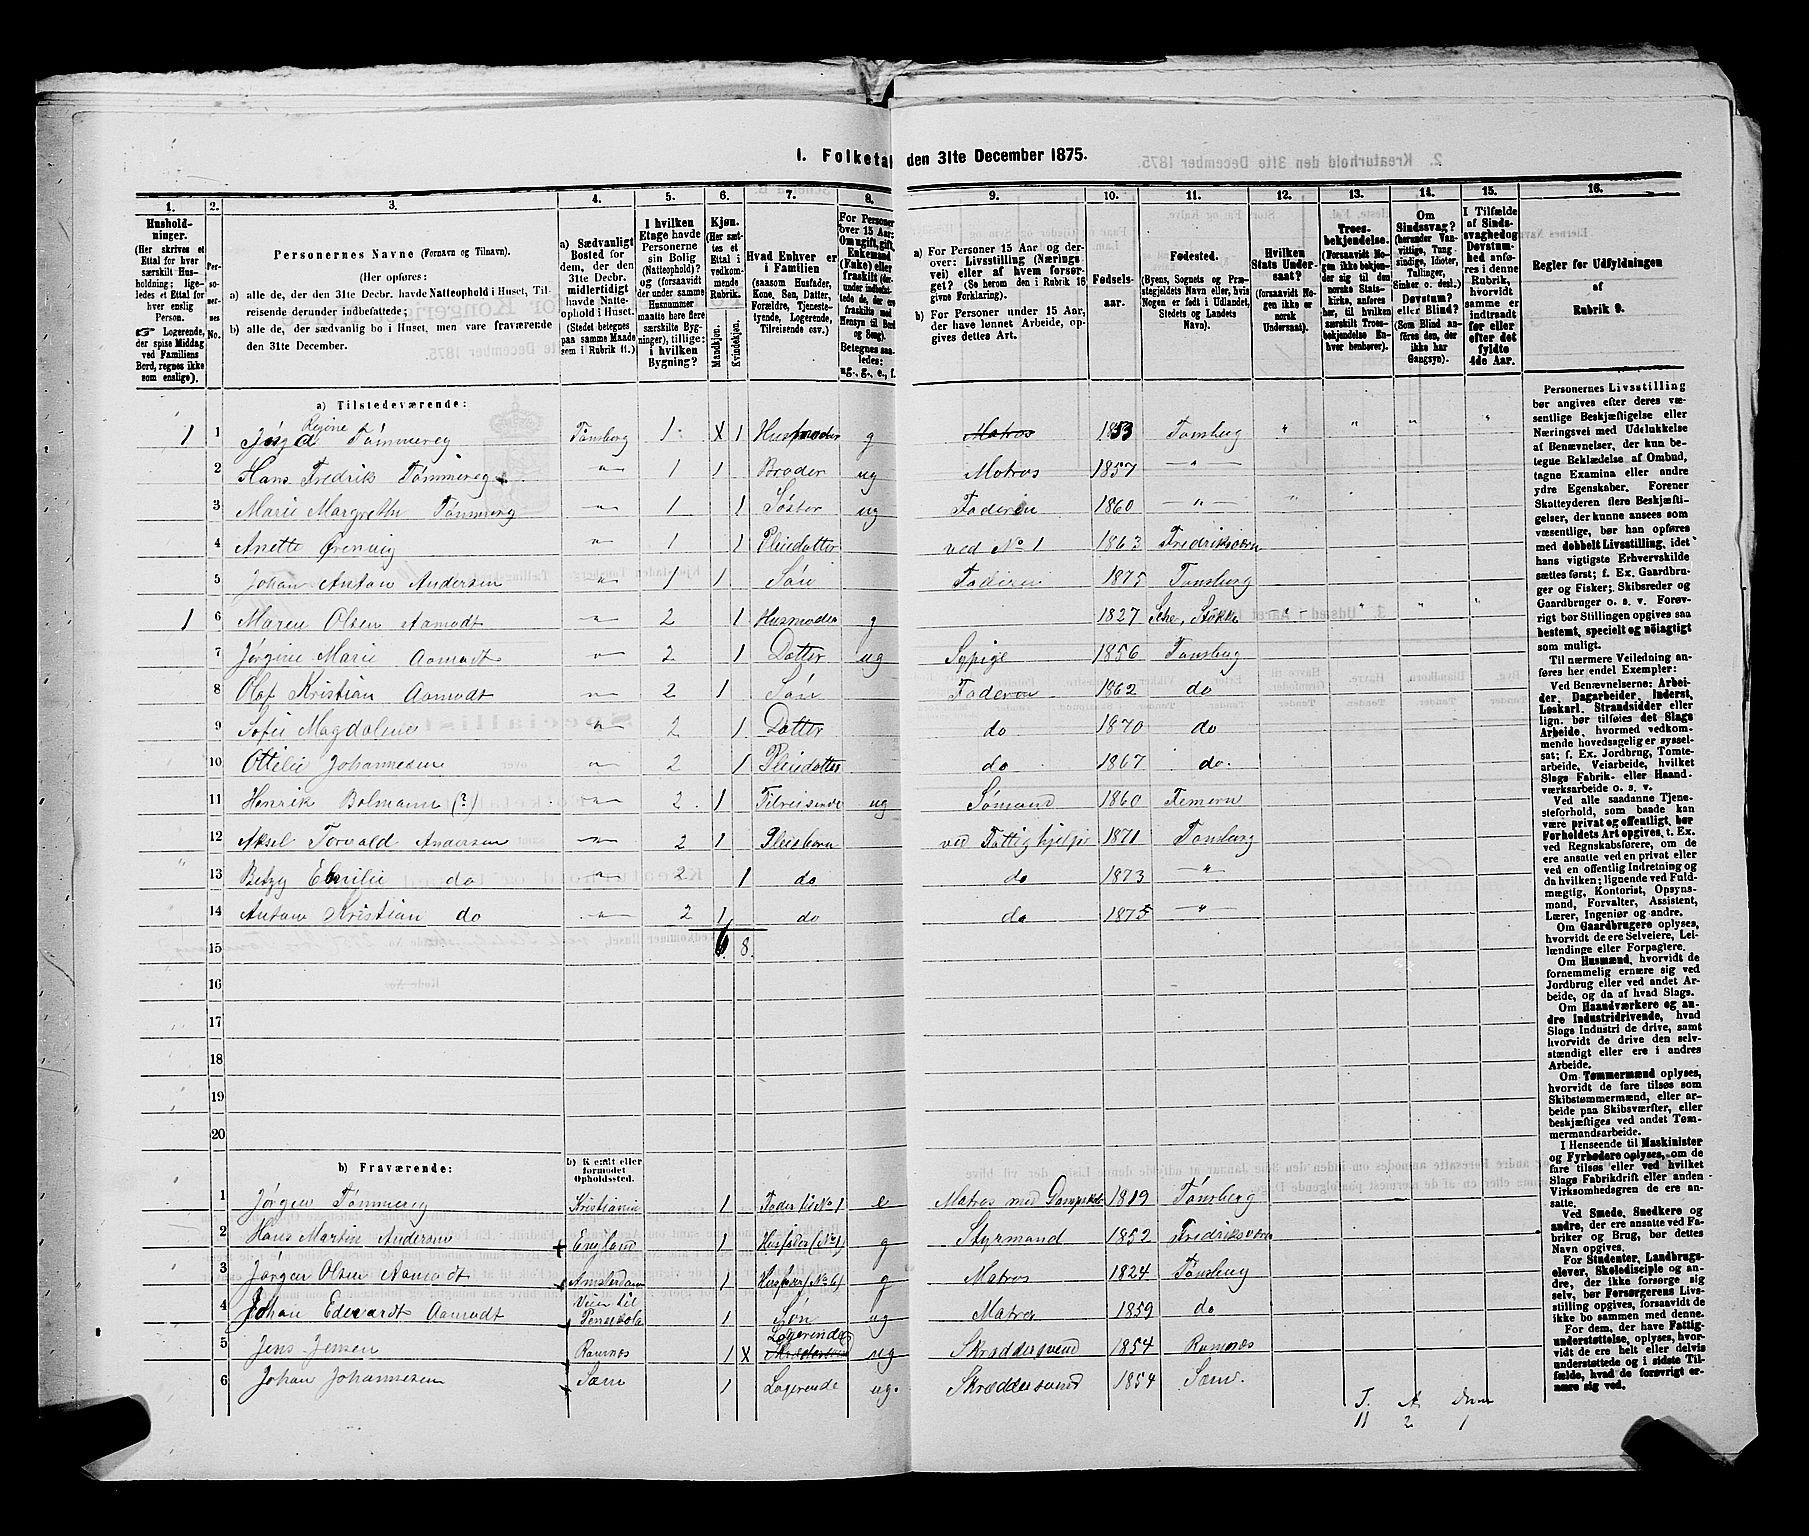 1. Folketæ
den 31te December 1875.
2. Kreaturhold den 31te December 1875.
1. 2. 3. 4. 5. 6. 7. 8. 9. 10. 11. 12. 13. 14. 15. 16.
Hushold-
ninger.
(Her skrives et
Ettal for hver
særskilt Hus-
holdning; lige-
ledes et Ettal for
hver enslig
Person.
☞ Logerende,
der spise Middag
ved Familiens
Bord, regnes ikke
som enslige).
Per-
so-
ner-
nes
No.
Personernes Navne (Fornavn og Tilnavn).
(Her opføres:
a) alle de, der den 31te Decbr. havde Natteophold i Huset, Til-
reisende derunder indbefattede;
b) alle de, der sædvanlig bo i Huset, men vare fraværende
den 31te December.
a) Sædvanligt
Bosted for
dem, der den
31te Decbr.
midlertidigt
havde Natte-
ophold i Huset.
(Stedet betegnes
paa samme Maade
som i Rubrik 11.)
I hvilken
Etage havde
Personerne
sin Bolig
(Natteophold)?
(forsaavidt
der under samme
Husnummer
maatte høre flere
særskilte Byg-
ninger), tillige:
i hvilken
Bygning?
Kjøn.
(Her sæt-
tes et
Ettal i
vedkom-
mende
Rubrik.
Mandkjøn.
Kvindekjøn.
Hvad Enhver er
i Familien
(saasom Husfader,
Kone, Søn, Datter,
Forældre, Tjeneste-
tyende, Logerende,
Tilreisende osv.)
For Personer
over 15 Aar:
Om ugift, gift,
Enkemand
(Enke) eller
fraskilt (der-
under indbefat-
tede de, der ere
fraskilte med
Hensyn til Bord
og Seng).
Betegnes saa-
ledes:
ug., g., e., f.
a) For Personer 15 Aar og der-
over: Livsstilling (Nærings-
vei) eller af hvem forsør-
get? (Se herom den i Rubrik 16
givne Forklaring).
b) For Personer under 15 Aar,
der have lønnet Arbeide, op-
gives dettes Art.
Fødsels-
aar.
Fødested.
(Byens, Sognets og Præ-
stegjeldets Navn eller, hvis
Nogen er født i Udlandet,
Stedets og Landets
Navn).
Hvilken
Stats Under-
saat?
(forsaavidt No-
gen ikke er
norsk
Undersaat).
Troes-
bekjendelse.
(Forsaavidt No-
gen ikke bekjen-
der sig til den
norske Stats-
kirke, anføres
her, til hvilken
særskilt Troes-
bekjendelse En-
hver henhører).
Om
Sindssvag?
(herunder Van-
vittige, Tung-
sindige, Idioter,
Tullinger,
Sinker o. desl.)
Døvstum?
eller Blind?
(Som Blind an-
føres den, der
ikke har
Gangsyn).
I Tilfælde
af Sinds-
svaghed og
Døvstum-
hed anfø-
res i denne
Rubrik,
hvorvidt
samme er
indtraadt
før eller
efter det
fyldte
4de Aar.
Regler for Udfyldningen
af
Rubrik 9.
a) Tilstedeværende:
Regine
1 1 Tømmereg Tønsberg 1 X 1 Husmoder g Matros 1853 Tønsberg " " " "
2 Hans Fredrik Tømmereg " 1 1 Broder ug Matros 1857 "
3 Marie Margrethe Tømmereg " 1 1 Søster ug Faderen 1860 " "
4 Anette Ørenvig " 1 1 Pleiedatter ved No 1 1863 Fredriksværn
5 Johan Anton Andersen " 1 1 Søn Faderen 1875 Tønsberg
1 6 Maren Olsen Aamodt " 2 1 Husmoder g 1827 Stokke " " " "
7 Jørgine Marie Aamodt " 2 1 Datter ug Sypige 1856 Tønsberg
8 Olaf Kristian Aamodt " 2 1 Søn Faderen 1862 do
9 Sofie Magdalene " 2 1 Datter do 1870 do
10 Ottilie Johannesen " 2 1 Pleiedatter do 1867 do.
11 Henrik Bolmann (?) " 2 1 Tilreisende ug Sømand 1860 Femern
12 Aksel Torvald Andersen " 2 1 Pleiebørn ved Fattighjelp 1871 Tønsberg
13 Betzy Emilie do " 2 1 do do 1873 "
14 Anton Kristian do " 2 1 do do 1875 "
15 6 8.
16
17
18
19
20
b) Fraværende:
b) Kjendt eller
formodet
Opholdssted.
1 Jørgen Tømmereg Kristiania 1 Fader til No 1 e Matros med Dampskib 1819 Tønsberg
2 Hans Martin Andersen England 1 Husfader (No 1) g Styrmand 1852 Fredriksværn
3 Jørgen Olsen Aamodt Amsterdam 1 Husfader (No 6) g Matros 1824 Tønsberg
4 Johan Edevardt Aamodt Veien til Pensakola 1 Søn ug Matros 1859 do
5 Jens Jensen Ramnæs 1 X Logerende ug Skræddersvend 1854 Ramnæs
6 Johan Johannesen Sæm 1 Logerende ug. Skræddersvend 1854 Sæm.
T. A.
11 2 1
Personernes Livsstilling
bør angives efter deres væ-
sentlige Beskjæftigelse eller
Næringsvei med Udelukkelse
af Benævnelser, der kun be-
tegne Beklædelse af Ombud,
tagne Examina eller andre
ydre Egenskaber. Forener
Skatteyderen flere Beskjæfti-
gelser, der kunne ansees som
væsentlige, bør han opføres
med dobbelt Livsstilling, idet
hans vigtigste Erhvervskilde
sættes først; f. Ex. Gaardbru-
ger og Fisker; Skibsreder og
Gaardbruger o. s. v. Forøv-
rigt bør Stillingen opgives saa
bestemt, specielt og nöiagtigt
som muligt.
Til nærmere Veiledning an-
føres her endel Exempler:
Ved Benævnelserne: Arbei-
der, Dagarbeider, Inderst,
Løskarl, Strandsidder eller
lign. bør tilføies det Slags
Arbeide, hvormed vedkom-
mende hovedsagelig er syssel-
sat; f. Ex. Jordbrug, Tomte-
arbeide, Veiarbeide, hvilket
Slags Fabrik- eller Haand-
værksarbeide o. s. v.
Ved alle saadanne Tjene-
steforhold, som baade kan
være privat og offentligt, bør
Forholdets Art opgives, t. Ex.
ved Regnskabsførere, om de
ere ansatte ved en privat eller
ved en offentlig Indretning og
da hvilken; lignende ved Fuld-
mægtig, Kontorist, Opsyns-
mand, Forvalter, Assistent,
Lærer, Ingeniør og andre.
Om Gaardbrugere oplyses,
hvorvidt de ere Selveiere, Lei-
lændinge eller Forpagtere.
Om Husmænd, hvorvidt de
fornemmelig ernære sig ved
Jordbrug eller ved andet Ar-
beide, og da af hvad Slags.
Om Haandværkere og an-
dre Industridrivende, hvad
Slags Industri de drive, samt
hvorvidt de drive den selv-
stændigt eller ere i andres
Arbeide.
Om Tømmermænd oplyses,
hvorvidt de fare tilsøs som
Skibstømmermænd, eller ar-
beide paa Skibsværfter, eller
beskjæftiges ved andet Tøm-
mermandsarbeide.
I Henseende til Maskinister
og Fyrbødere oplyses, om de
fare tilsøs eller ved hvilket
Slags Fabrikdrift eller anden
Virksomhedsgren de ere an-
satte.
Ved Smede, Snedkere og
andre, der ere ansatte ved Fa-
briker og Brug, bør dettes
Navn opgives.
For Studenter, Landbrugs-
elever, Skoledisciple og an-
dre, der ikke forsørge sig
selv, bør Forsørgerens Livs-
stilling opgives, forsaavidt de
ikke bo sammen med denne.
For dem, der have Fattig-
understøttelse, oplyses, hvor-
vidt de ere helt eller delvis
understøttede og i sidste Til-
fælde, hvad de forøvrigt er-
nære sig ved.